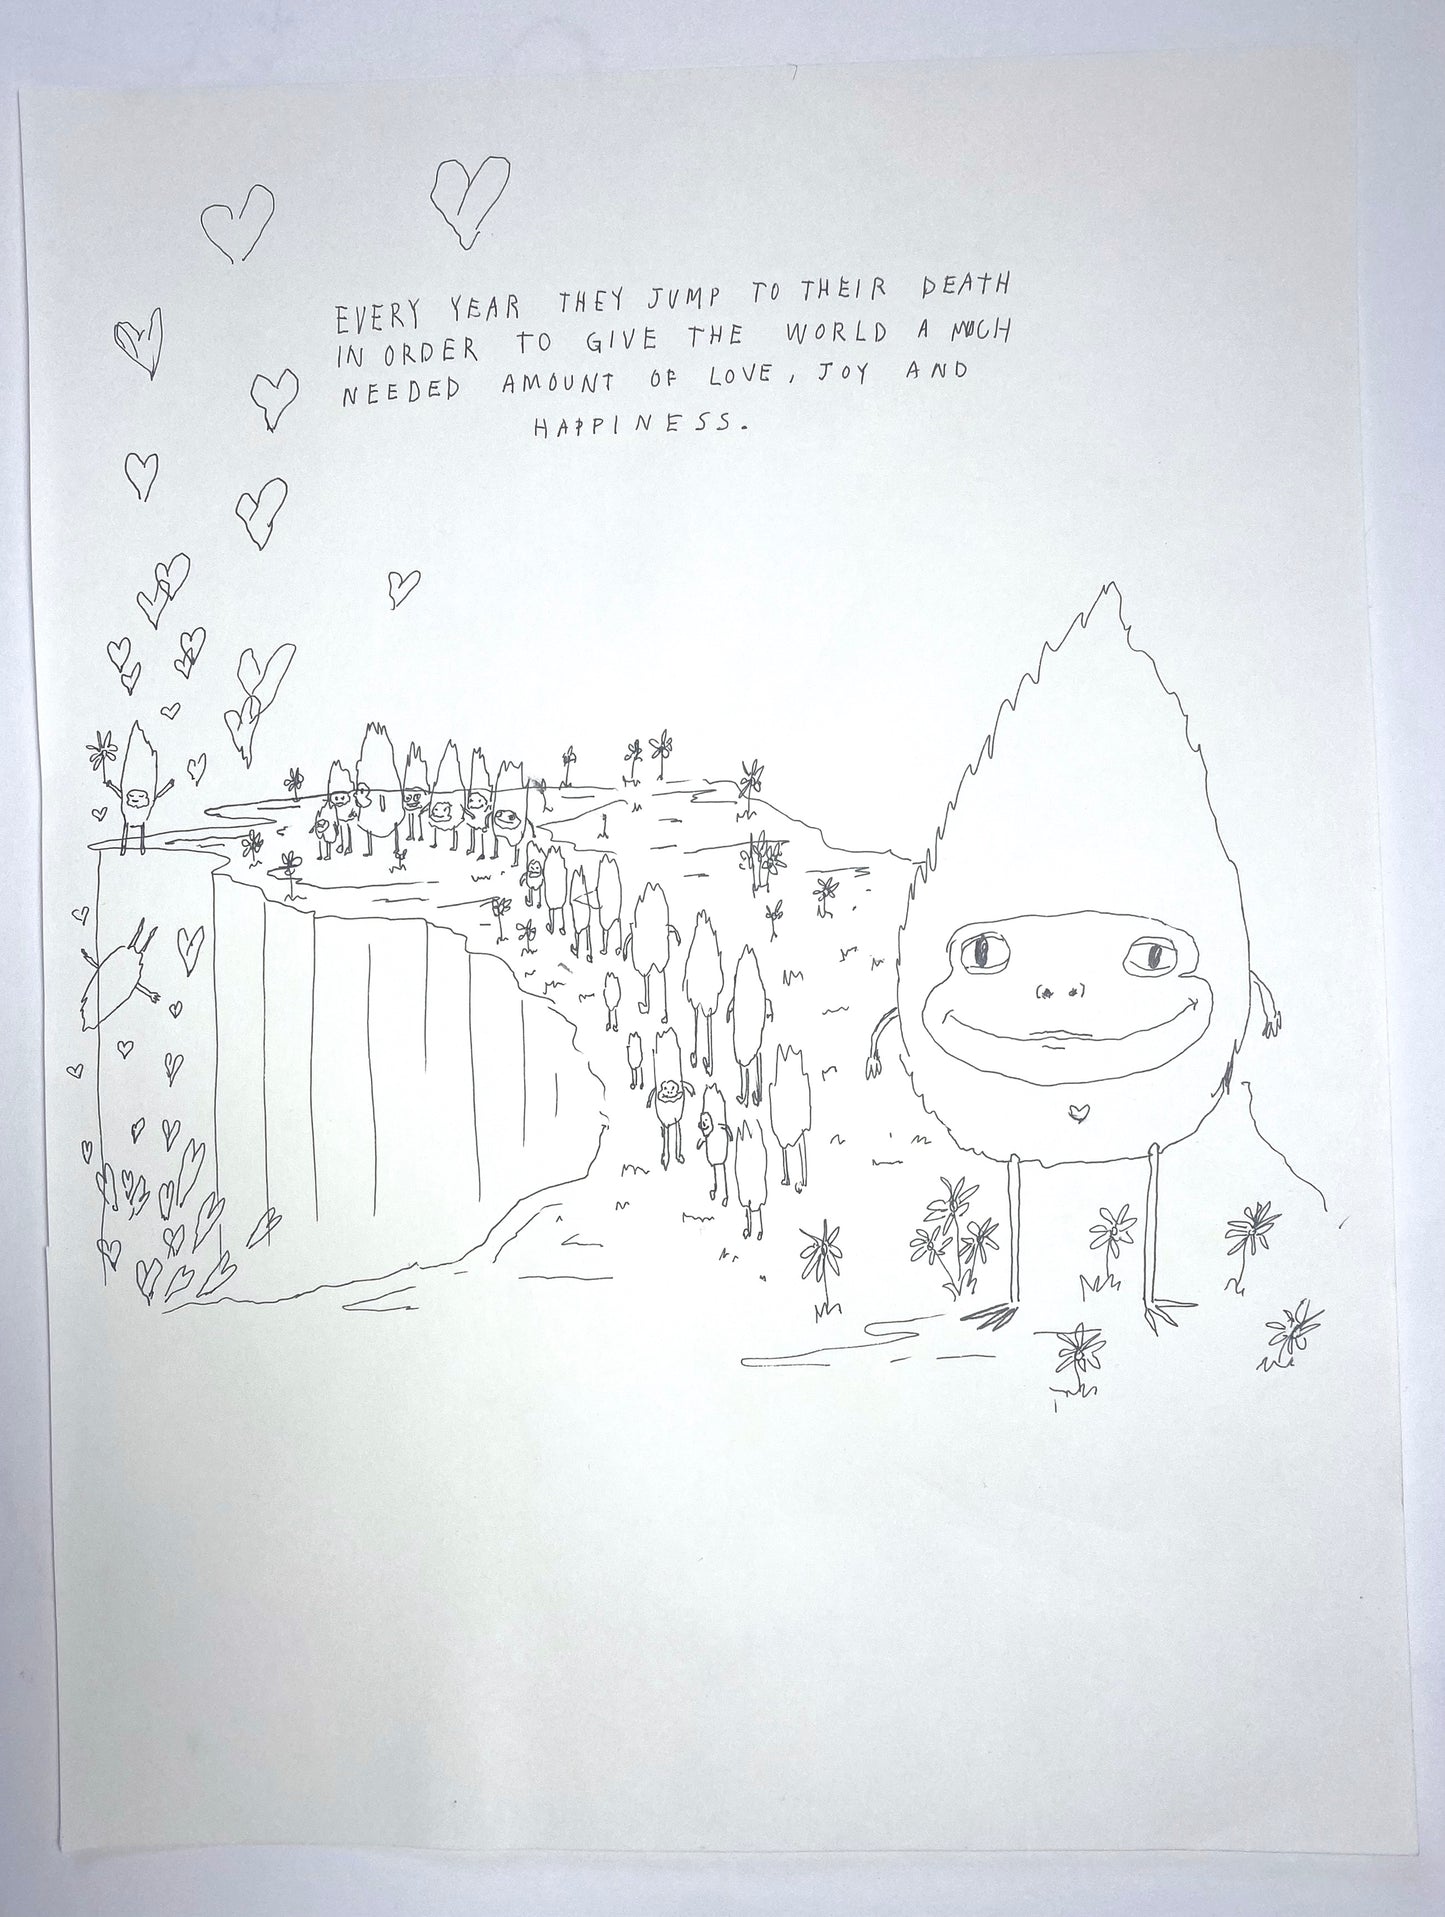 EVERY YEAR THEY JUMP TO THEIR DEATH
IN ORDER TO GIVE THE WORLD A MUCH
NEEDED AMOUNT OF LOVE, JOY AND
HAPPINESS.